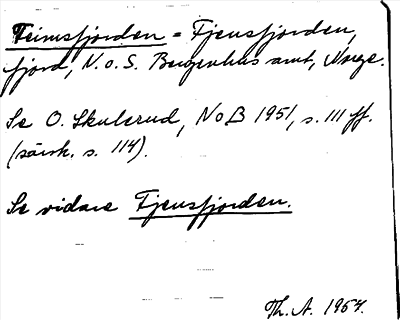 Feimsfjorden = Fjensfjorden,
fjord, N. o. S. Bergenhus amt, Norge.
Se O. Skulerud, NoB 1951, s. 111 ff.
(särsk. s. 114).
Se vidare Fjensfjorden.
Th. A. 1957.